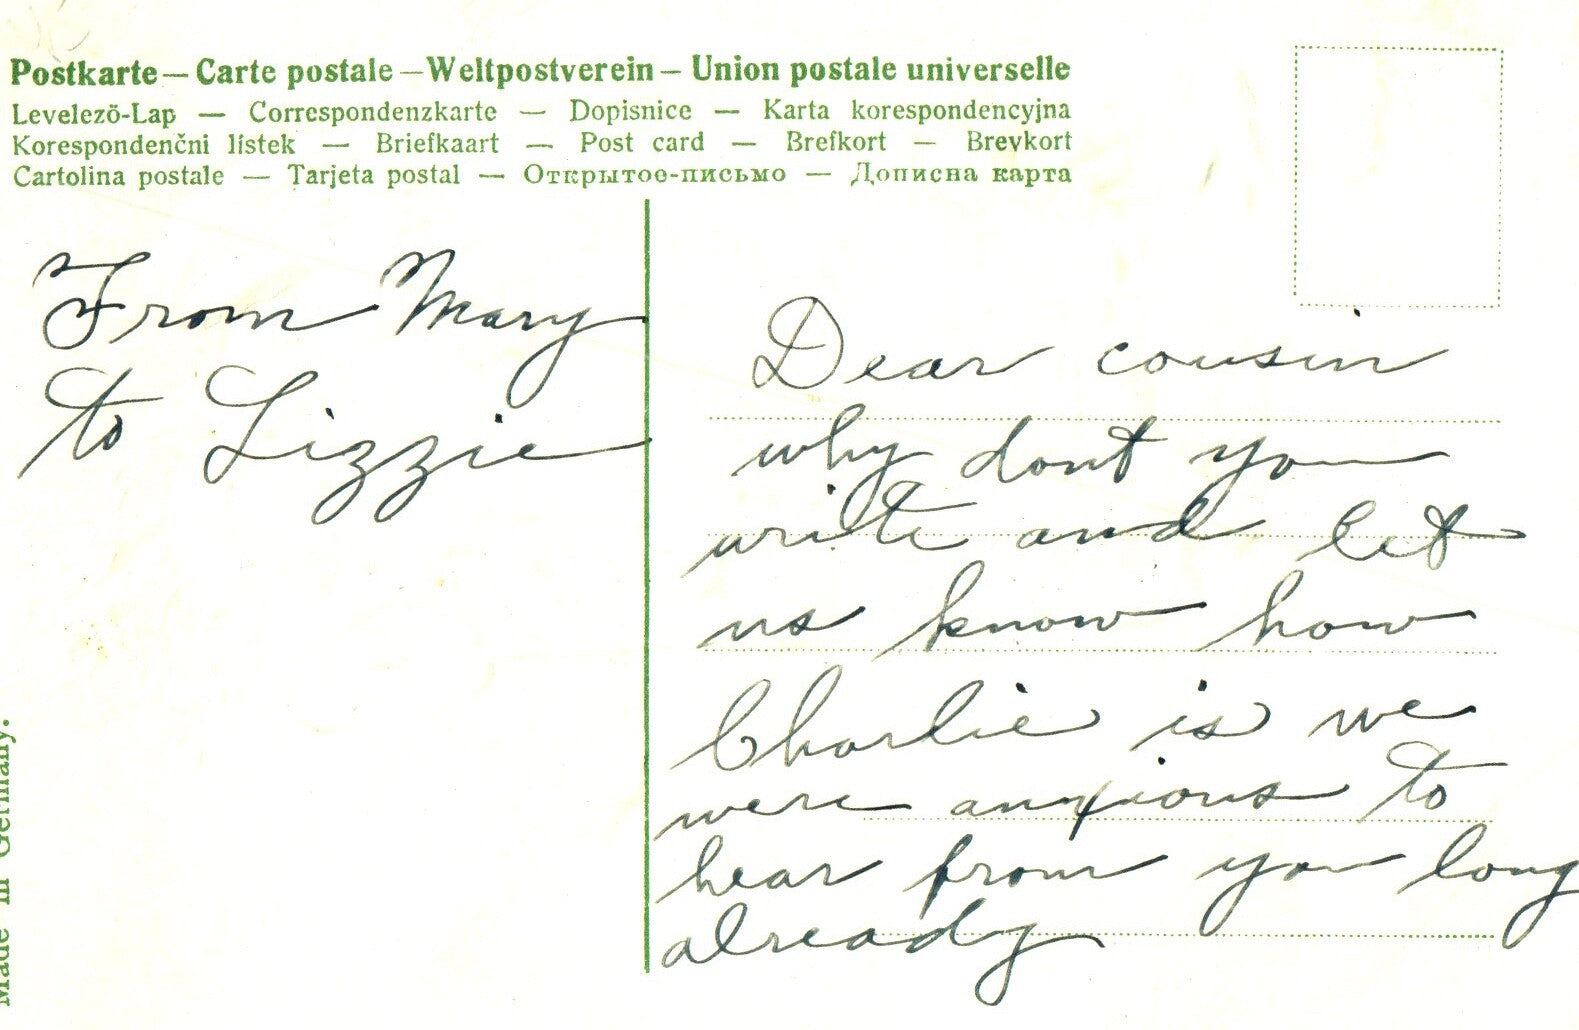 Postkarte — Carte postale — Weltpostverein — Union postale universelle
Levelező-Lap — Correspondenzkarte — Dopisnice — Karta korespondencyjna
Korespondenčni lístek — Briefkaart — Post card — Brefkort — Brevkort
Cartolina postale — Tarjeta postal — Открытое-письмо — Дописна карта
From Mary
to Lizzie
Dear cousin
why dont you
write and let
us know how
Charlie is we
were anxious to
hear from you long
already
Made in Germany.